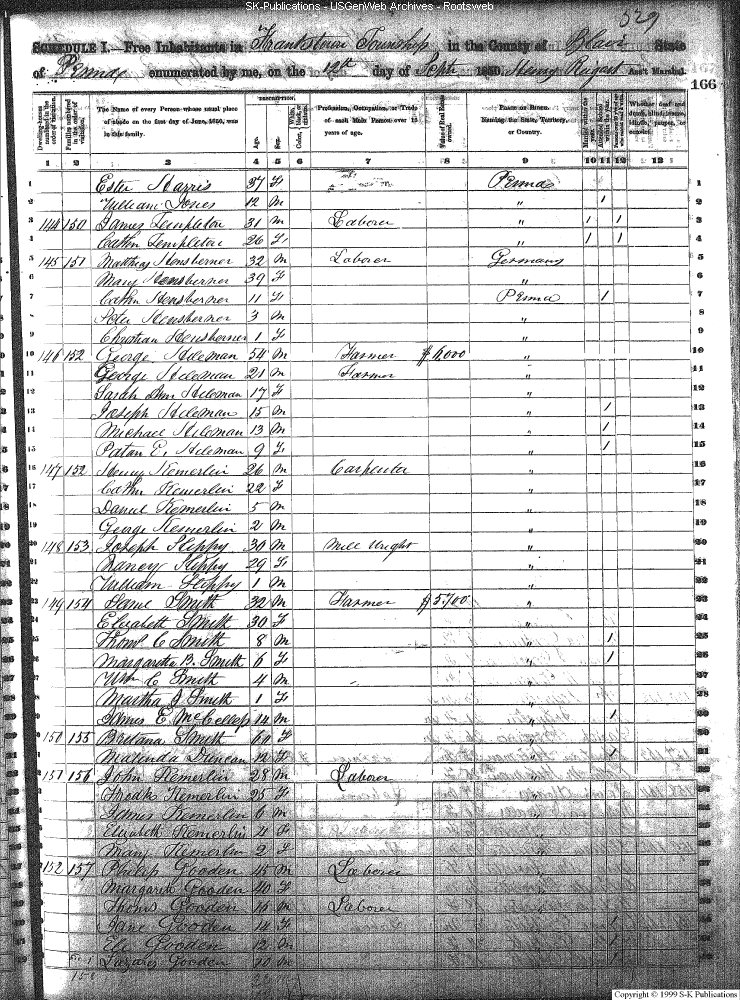 SK-Publications - USGenWeb Archives - Rootsweb
329
SCHEDULE I.—Free Inhabitants in Frankstown Township in the County of Blair State
of Penna enumerated by me, on the 12th day of Sept 1850. Henry Ass't Marshal.
166
Dwelling-houses numbered in the order of visitation.
Families numbered in the order of visitation.
The Name of every Person whose usual place of abode on the first day of June, 1850, was in this family.
DESCRIPTION.
Age.
Sex.
Color,
Profession, Occupation, or Trade of each Male Person over 15 years of age.
Value of Real Estate owned.
PLACE OF BIRTH. Naming the State, Territory, or Country.
Married within the year.
Whether deaf and dumb, blind, insane, idiotic, pauper, or convict.
1 2 3 4 5 6 7 8 9 10 11 12 13
1 Ester Harris 37 F Penna 1
2 William Jones 12 M " 1 2
3 144 150 James Templeton 31 M Laborer " 1 1 3
4 Cathn Templeton 26 F " 1 1 4
5 145 151 Matthias Hensberner 32 M Laborer Germany 5
6 Mary Hensberner 39 F " 6
7 Cathn Hensberner 11 F Penna 1 7
8 Peter Hensberner 3 M " 8
9 Christian Hensberner 1 F " 9
10 146 152 George Hileman 54 M Farmer $6,000 " 10
11 George Hileman 21 M Farmer " 11
12 Sarah Ann Hileman 17 F " 12
13 Joseph Hileman 15 M " 1 13
14 Michael Hileman 13 M " 1 14
15 E. Hileman 9 F " 1 15
16 147 152 Henry Kemerlin 26 M Carpenter " 16
17 Cathn Kemerlin 22 F " 17
18 Daniel Kemerlin 5 M " 18
19 George Kemerlin 2 M " 19
20 148 153 Joseph Slippy 30 M Mill Wright " 20
21 Nancy Slippy 29 F " 21
22 William Slippy 1 M " 22
23 149 154 Smith 32 M Farmer $5700 " 23
24 Elizabeth Smith 30 F "
25 Thoms C Smith 8 M " 1 25
26 Margaretta B. Smith 6 F " 1 26
27 Wm C Smith 4 M " 27
28 Martha J Smith 1 F " 28
29 James E McCellop 14 M " 1 29
30 150 155 Smith 60 F " 30
31 Matilda Duncan 12 F " 1 31
32 151 156 John Kemerlin 28 M Laborer "
Fredk Kemerlin 25 F "
James Kemerlin 6 M "
Elizabeth Kemerlin 4 F "
Mary Kemerlin 2 F "
152 157 Philip Gooden 45 M Laborer "
Margaret Gooden 40 F "
Thoms Gooden 15 M Laborer "
Jane Gooden 14 F " 1
Eli Gooden 12 M " 1
Gooden 10 M 1
Copyright © 1999 S-K Publications